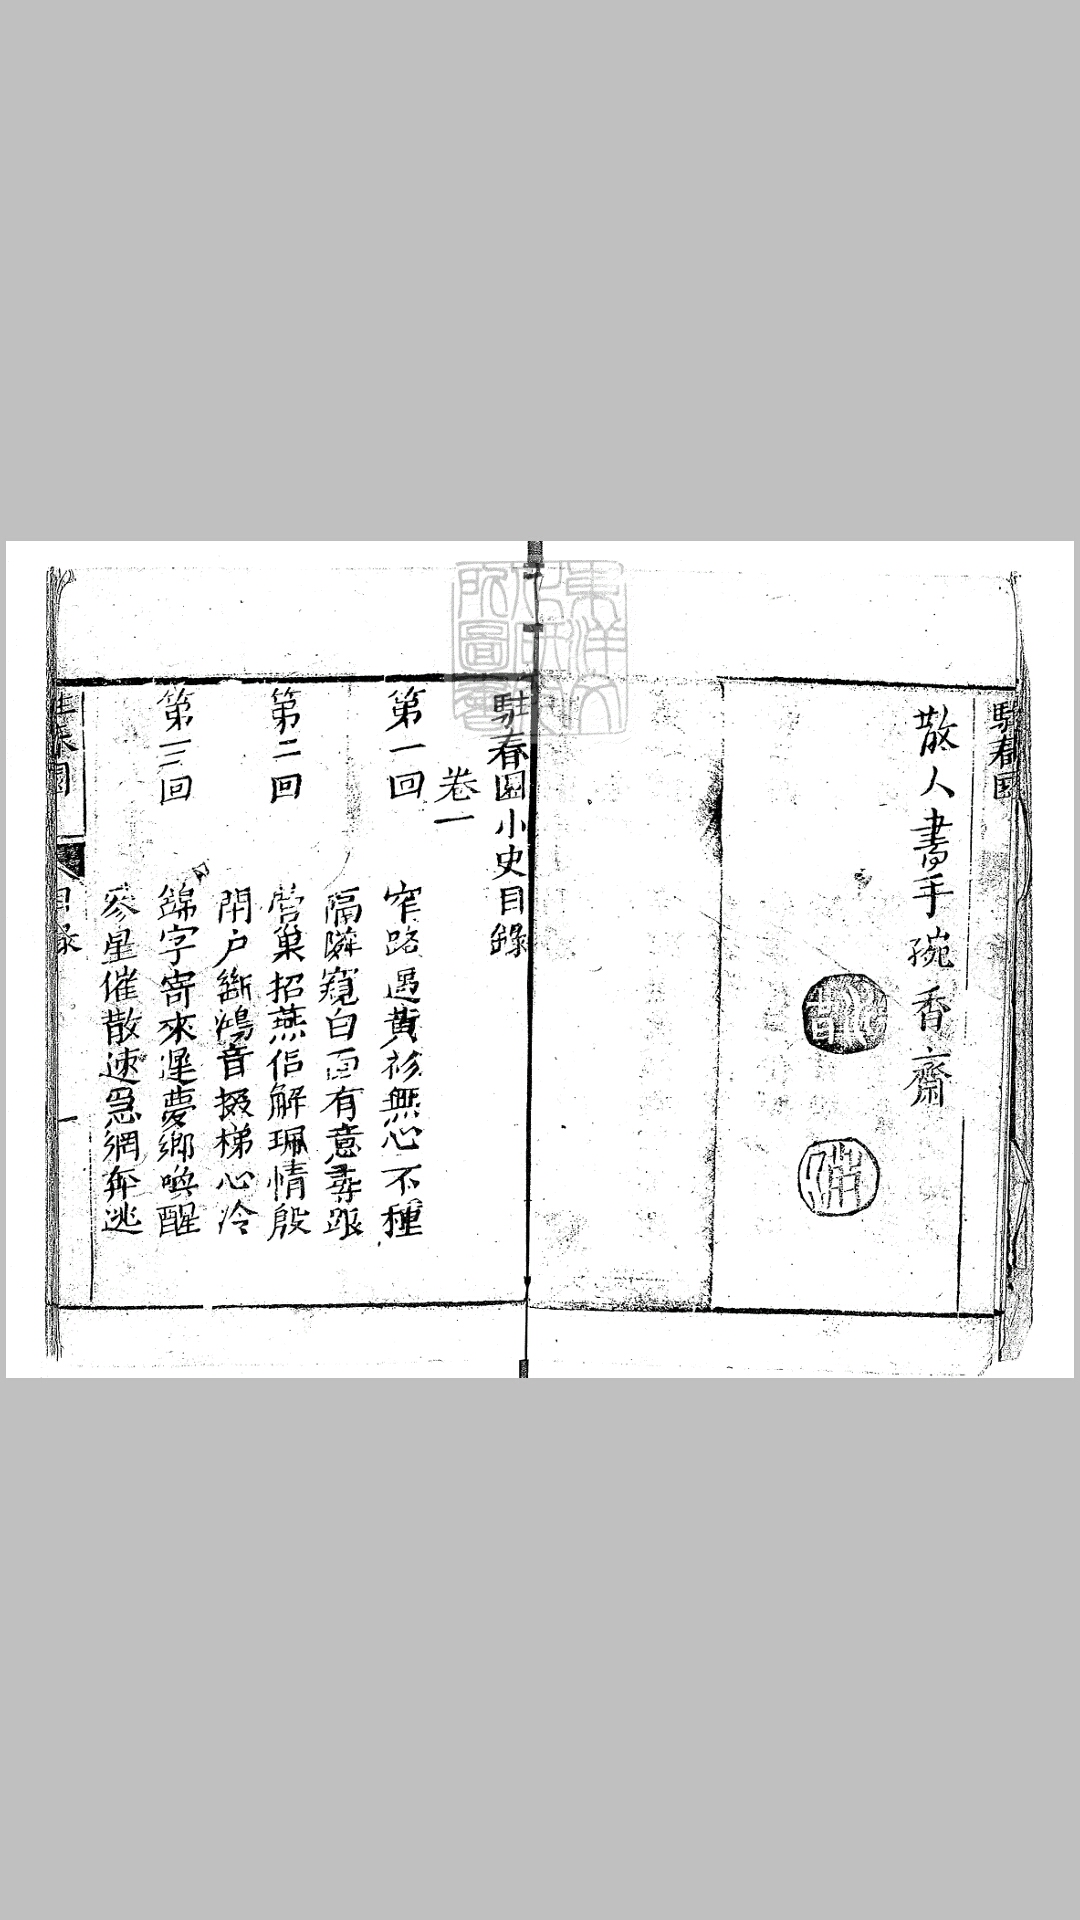 駐春園
散人書手琬香齋
駐春園小史目錄
卷一
第一回
窄路遇黃衫無心不種
隔隣窺白面有意尋跟
第二回
營巢招燕侶解珮情殷
閉户斷鴻音掇梯心冷
第三回
錦字寄來遲夢鄉喚醒
參星催散速急網奔逃
駐春園
目錄
一